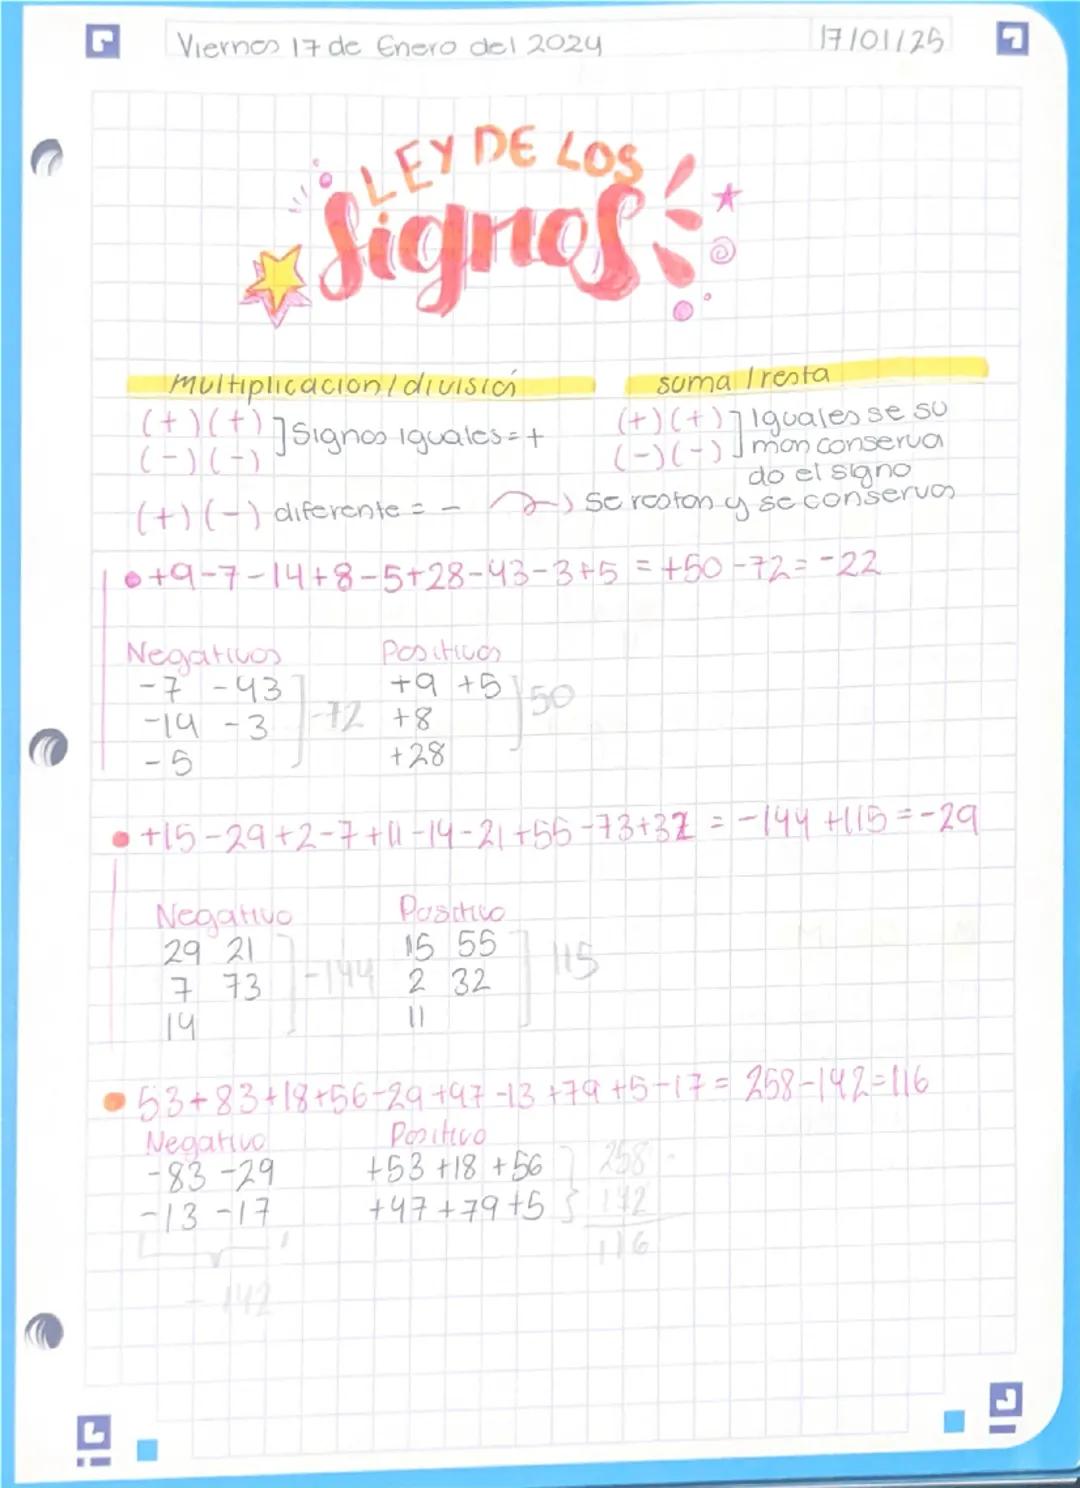 Viernes 17 de Enero del 2024
17/01/25
LEY DE LOS
Signos
multiplicacion/division
(+)(+)
(-)(-)
] Signos iguales = +
(+)(-) diferente = -
suma / resta
(+)(+)
(-)(-)
] Iguales se su
man conserva
do el signo
Se restan y se conservan
+9-7-14+8-5+28-43-3+5 = +50-72=-22
Negativos
-7 -43
-14 -3
-5
-72
Positivos
+9 +5
+8
+28
50
+15-29+2-7+11-14-21+55-73+32 = -144+115=-29
Negativo
29 21
7 73
14
-144
Positivo
15 55
2 32
11
115
53+83+18+56-29+47-13+79+5-17= 258-142=116
Negativo
-83 -29
-13 -17
-142
Positivo
+53 +18 +56
+47+79+5
258
142
116